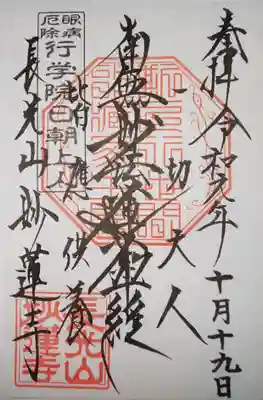 奉拝 令和元年 十月十九日
一切天人
南無妙法蓮華経
皆應供養
眼病
厄除
行学院日朝上人
長光山妙蓮寺
長光山
妙蓮寺